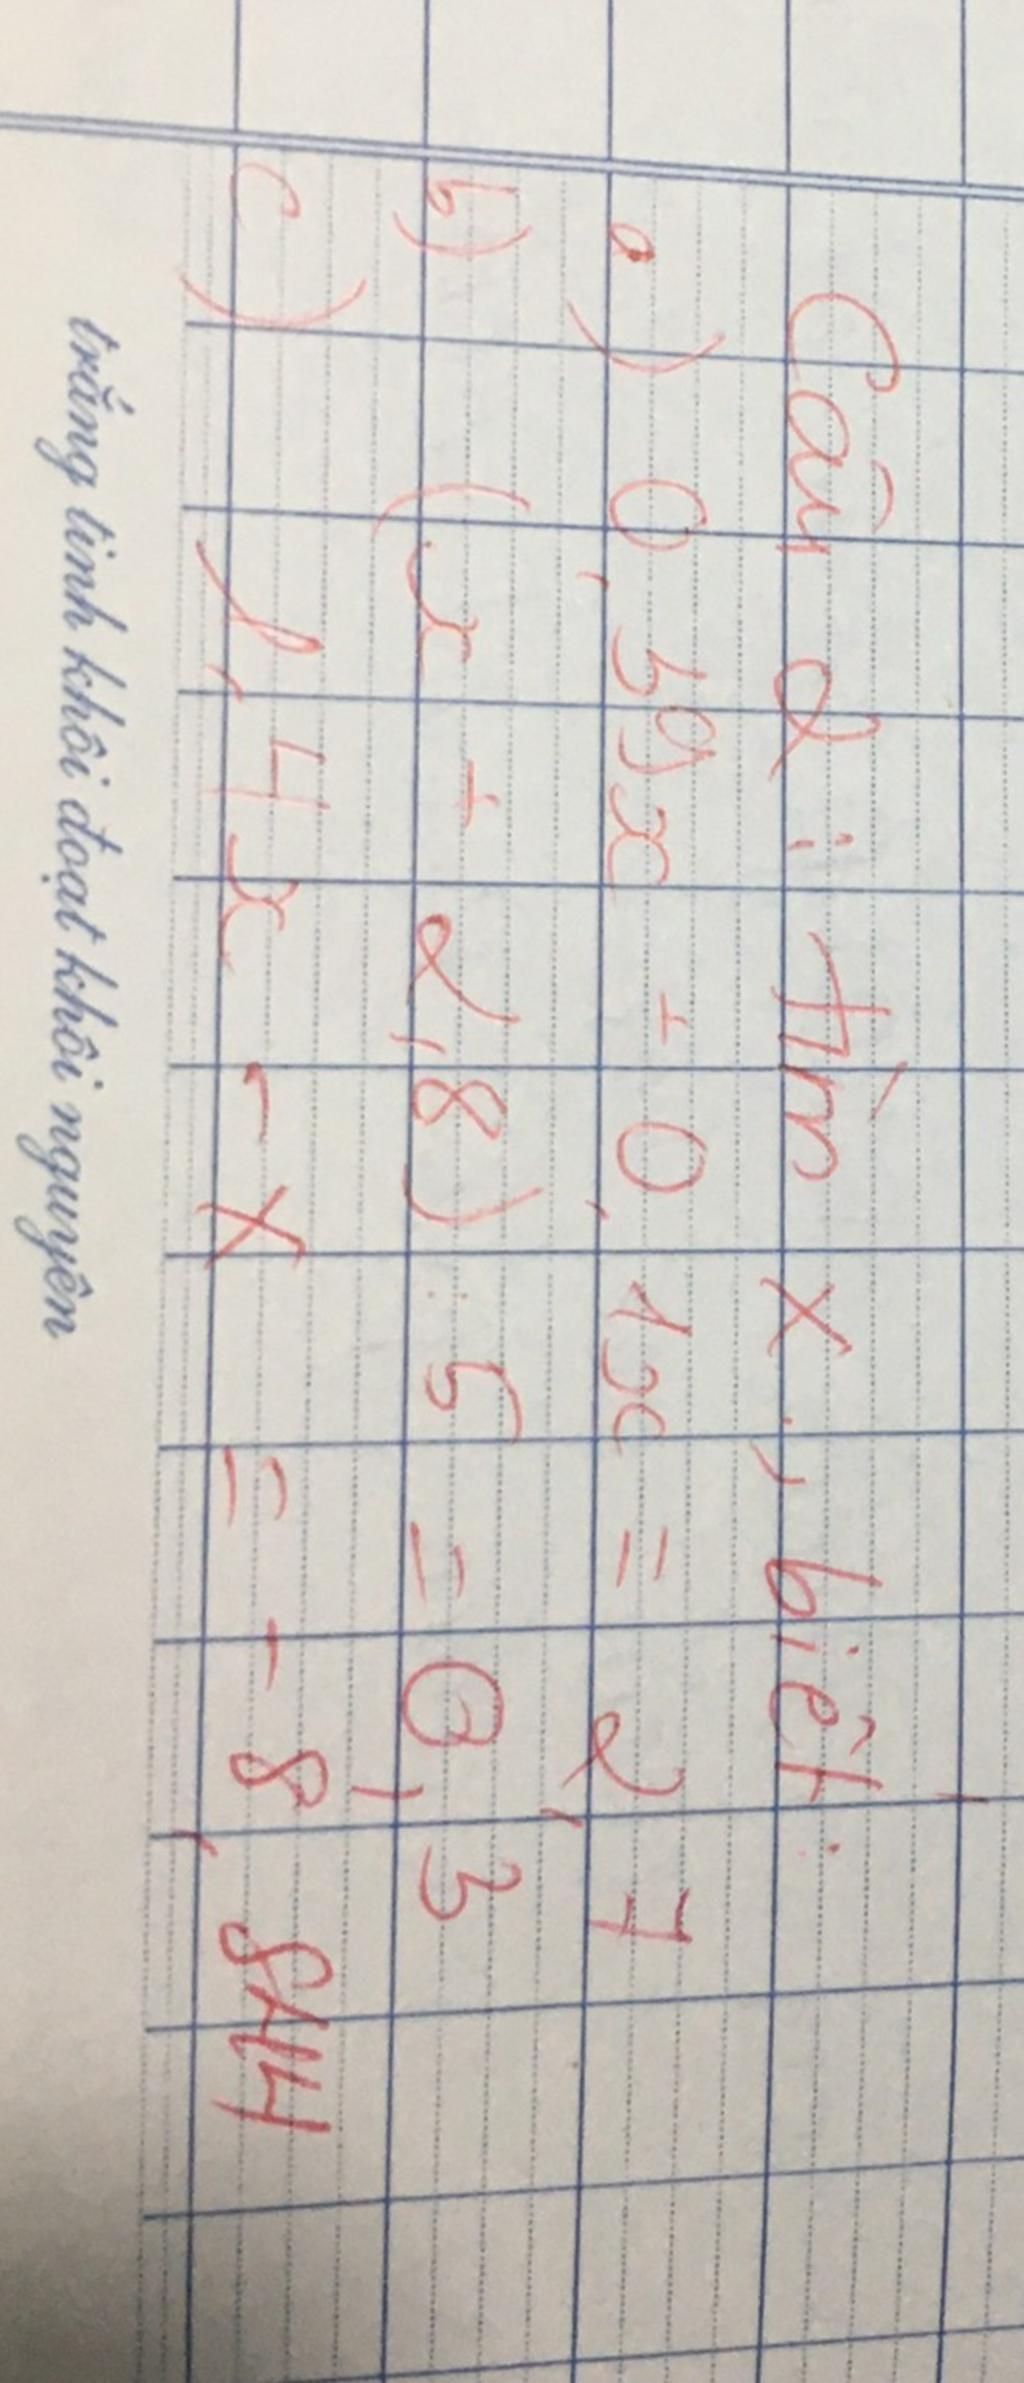 Câu 2 : tìm x, biết :
a) 0,59x + 0,1x = 2,7
b) (x + 2,8) : 5 = 0,3
c) 1,4x - x = - 8,844
trắng tinh khôi đoạt khôi nguyên